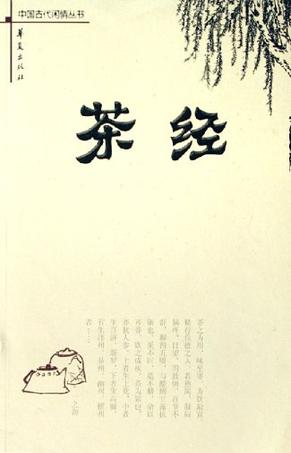 中国古代闲情丛书
华夏出版社
茶经
茶之为用，味至寒，为饮最宜
精行俭德之人。若热渴、凝闷、
脑疼、目涩、四肢烦、百节不
舒，聊四五啜，与醍醐甘露抗
衡也。采不时，造不精，杂以
卉莽，饮之成疾。茶为累也，
亦犹人参。上者生上党，中者
生百济、新罗，下者生高丽。
有生泽州、易州、幽州、檀州
者……